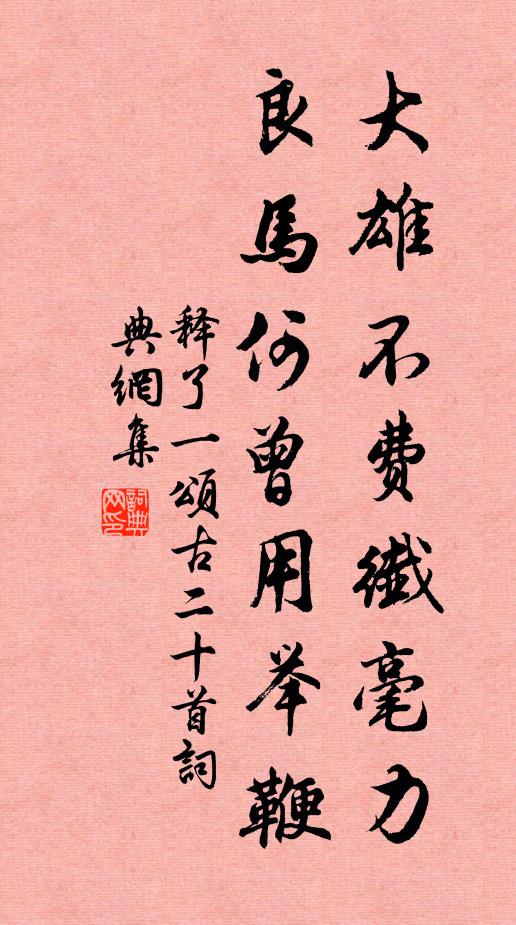 大雄不費纖毫力
良馬何曾用举鞭
释了一頌古二十首詞
典網集
詞典网印